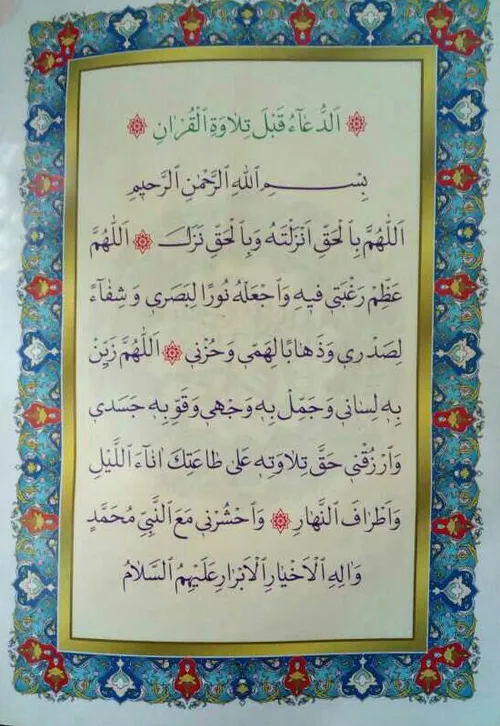 اَلدُّعَآءُ قَبْلَ تِلَاوَةِ الْقُرْاٰنِ
بِسْمِ اللّٰهِ الرَّحْمٰنِ الرَّحيمِ
اَللّٰهُمَّ بِالْحَقِّ اَنْزَلْتَهُ وَبِالْحَقِّ نَزَلَ اَللّٰهُمَّ
عَظِّمْ رَغْبَتي فيهِ وَاجْعَلْهُ نُورًا لِبَصَري وَ شِفَآءً
لِصَدْري وَذَهَابًا لِهَمّي وَحُزْني اَللّٰهُمَّ زَيِّنْ
بِه لِساني وَجَمِّلْ بِه وَجْهي وَقَوِّ بِه جَسَدي
وَارْزُقْني حَقَّ تِلَاوَتِه عَلى طَاعَتِكَ انآءَ اللَّيْلِ
وَاَطْرَافَ النَّهَارِ وَاحْشُرْني مَعَ النَّبِيِّ مُحَمَّدٍ
وَالِهِ الْاَخْيَارِ الْاَبْرَارِ عَلَيْهِمُ السَّلَامُ